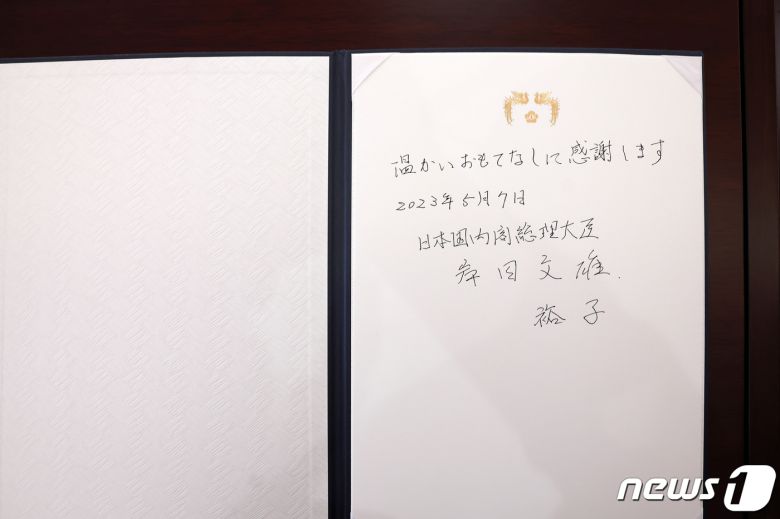 温かいおもてなしに感謝します
2023年5月7日
日本国内閣総理大臣
岸田文雄.
裕子
news1